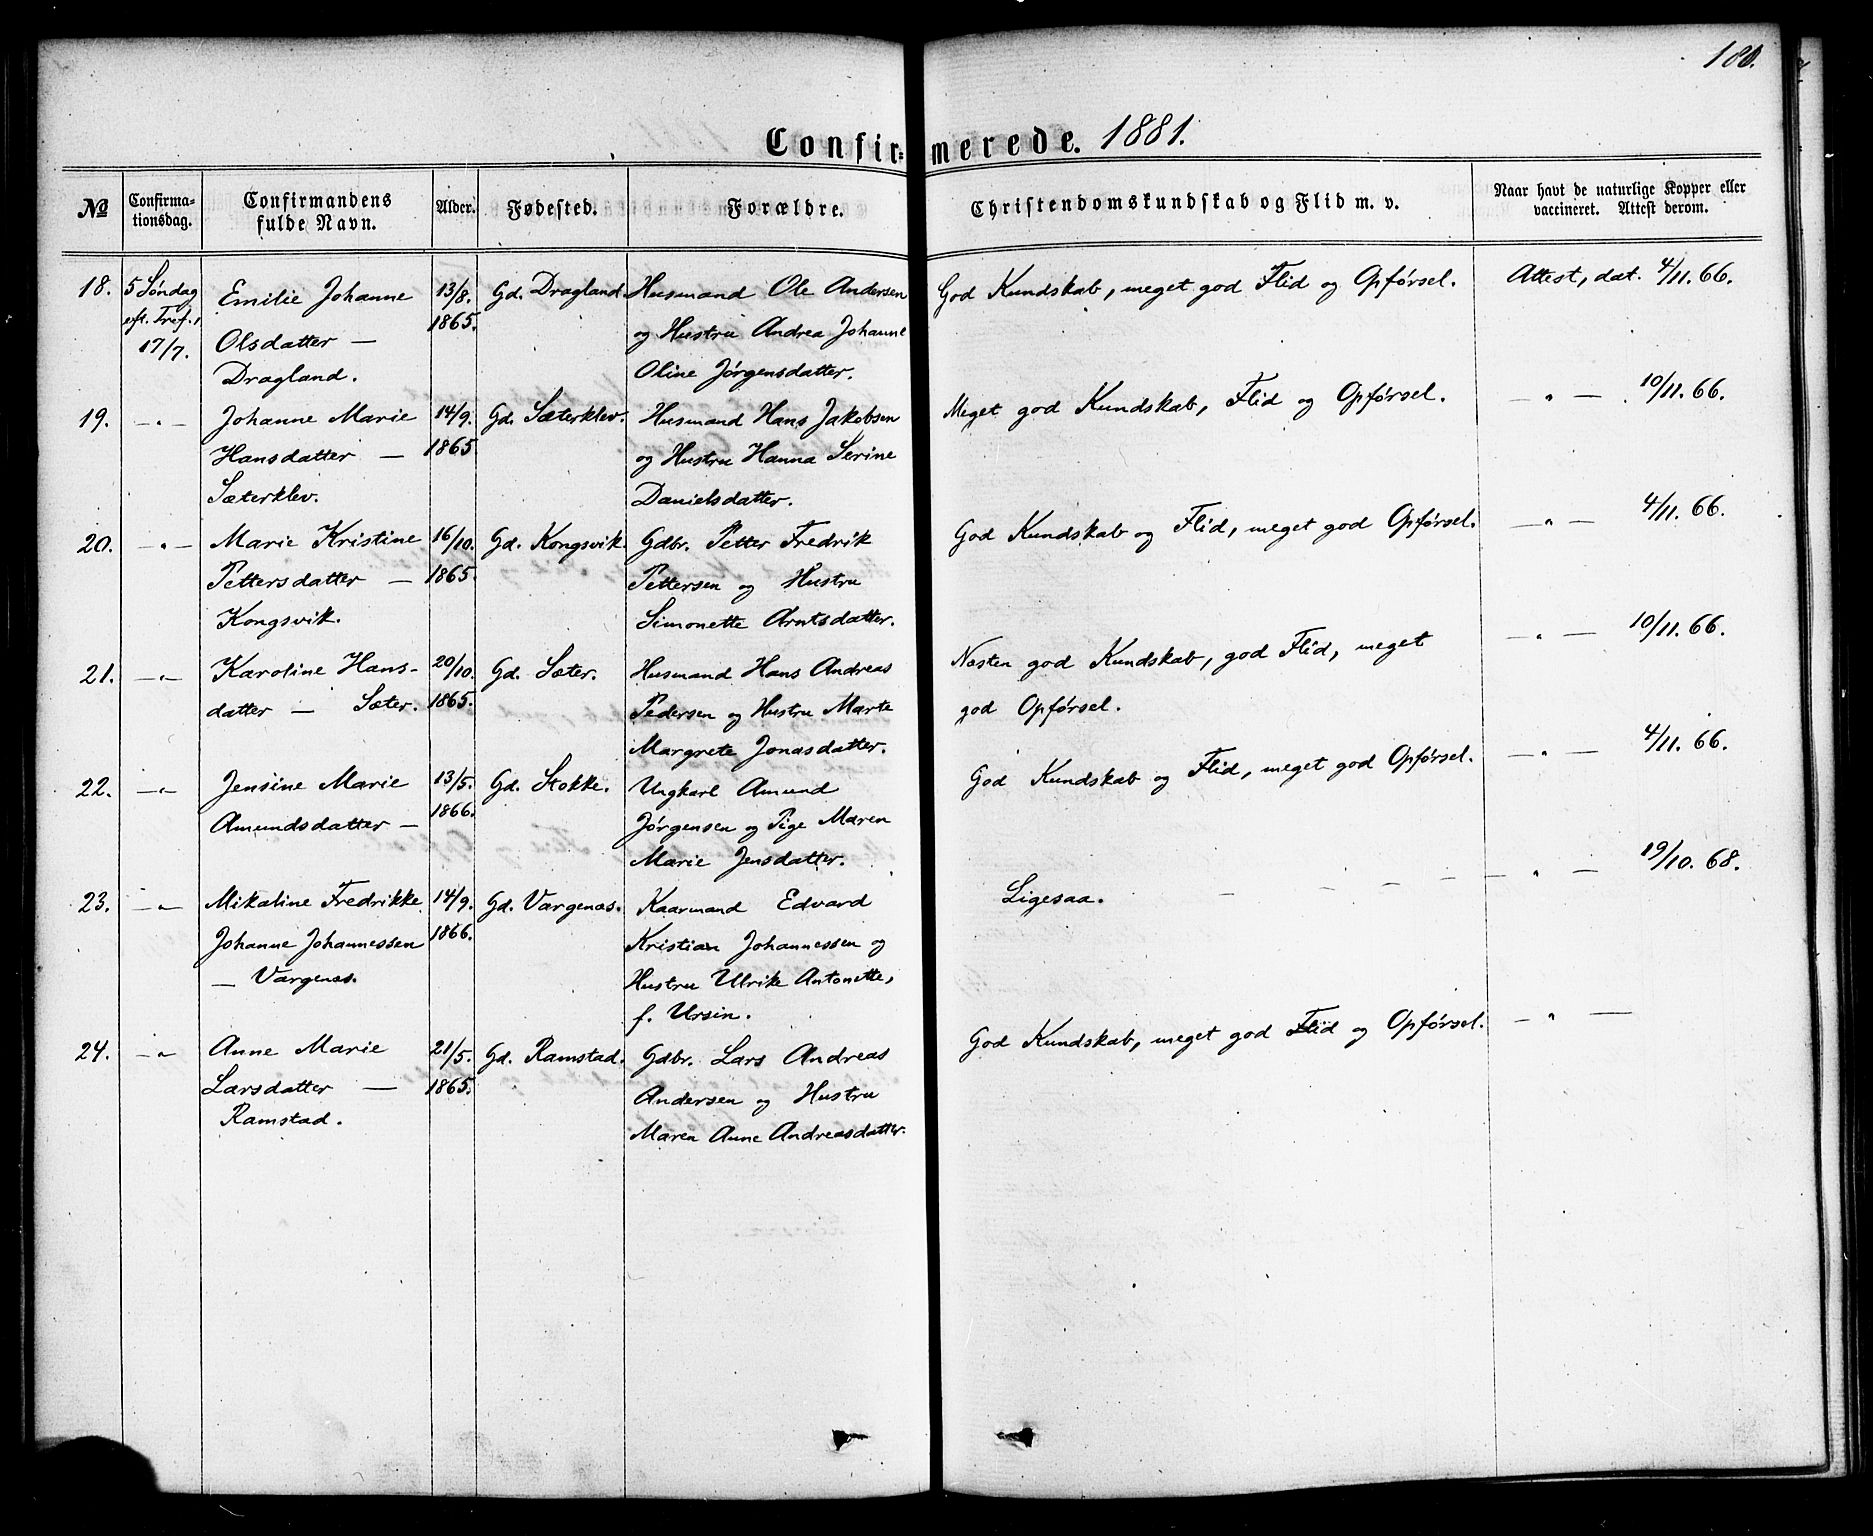 180.
Confirmerede. 1881.
№ | Confirma-tionsdag. | Confirmandens fulde Navn. | Alder. | Fødested. | Forældre. | Christendomskundskab og Flid m. v. | Naar havt de naturlige Kopper eller vaccineret. Attest derom.
18. 5 Søndag Emilie Johanne 13/8. Gd. Dragland Husmand Ole Andersen God Kundskab, meget god Flid og Opførsel. Attest, dat. 4/11. 66.
eft. Tref., Olsdatter — 1865. og Hustru Andrea Johanne
17/7. Dragland. Oline Jørgensdatter.
19. —〃— Johanne Marie 14/9. Gd. Sæterklev. Husmand Hans Jakobsen Meget god Kundskab, Flid og Opførsel. —〃— 10/11. 66.
Hansdatter — 1865 og Hustru Hanna Serine
Sæterklev. Danielsdatter.
20. —〃— Marie Kristine 16/10. Gd. Kongsvik. Gdbr. Petter Fredrik God Kundskab og Flid, meget god Opførsel. —〃— 4/11. 66.
Pettersdatter — 1865. Pettersen og Hustru
Kongsvik. Simonette Arntsdatter.
21. —〃 Karoline Hans- 20/10. Gd. Sæter. Husmand Hans Andreas Næsten god Kundskab, god Flid, meget —〃— 10/11. 66.
datter — Sæter. 1865. Pedersen og Hustru Marte god Opførsel.
Margrete Jonasdatter.
22. —〃 Jensine Marie 13/5. Gd. Stokke. Ungkarl Amund God Kundskab og Flid, meget god Opførsel. —〃— 4/11. 66.
Amundsdatter — 1866. Jørgensen og Pige Maren
Marie Jensdatter.
23. —〃 Mikaline Fredrikke 14/9. Gd. Vargenæs. Kaarmand Edvard Ligesaa. — — — — —〃— 19/10. 68.
Johanne Johannessen 1866. Kristian Johannessen og
— Vargenæs. Hustru Ulrike Antonette,
f. Ursin.
24. —〃 Anne Marie 21/5. Gd. Ramstad. Gdbr. Lars Andreas God Kundskab, meget god Flid og Opførsel. —〃—
Larsdatter — 1865. Andersen og Hustru
Ramstad. Maren Anne Andreasdatter.